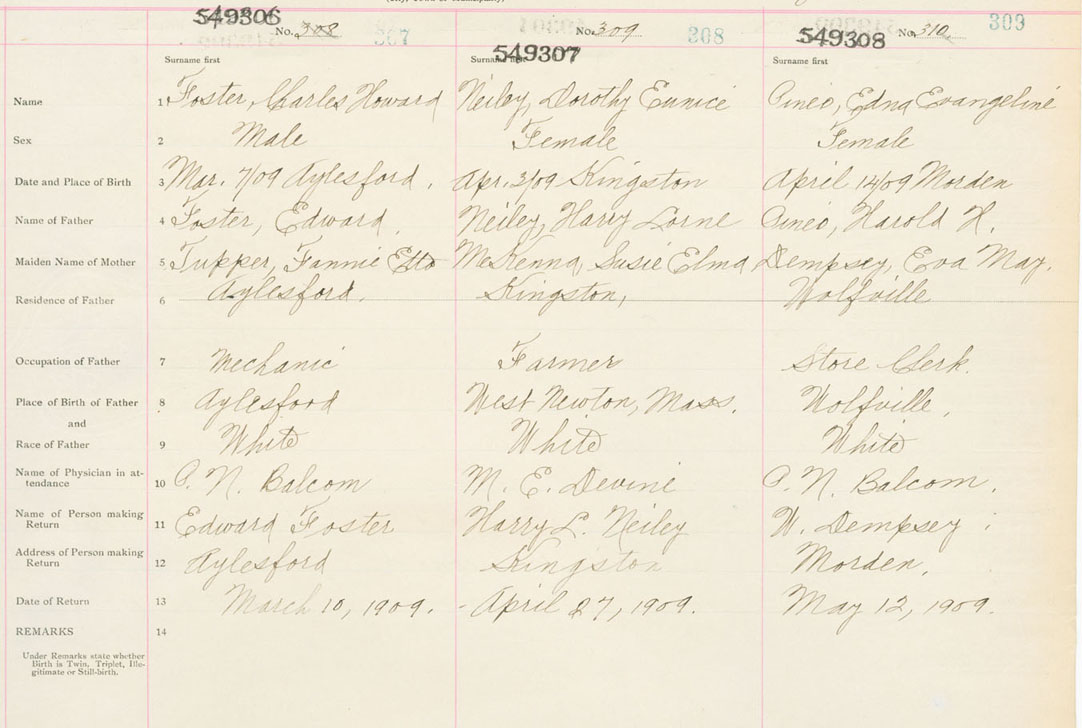 549306 No. 308 307 No. 309 308 549308 No. 310 309
Surname first Surname first 549307 Surname first
Name 1 Foster, Charles Howard Neiley, Dorothy Eunice Cineo, Edna Evangeline
Sex 2 Male Female Female
Date and Place of Birth 3 Mar. 7/09 Aylesford. Apr. 3/09 Kingston April 14/09 Morden
Name of Father 4 Foster, Edward. Neiley, Harry Lorne Cineo, Harold H.
Maiden Name of Mother 5 Tupper, Fannie Etta McKenna, Susie Elma Dempsey, Eva May.
Residence of Father 6 Aylesford. Kingston, Wolfville
Occupation of Father 7 Mechanic Farmer Store Clerk.
Place of Birth of Father 8 Aylesford West Newton, Mass. Wolfville,
and
Race of Father 9 White White White
Name of Physician in at-
tendance 10 P. N. Balcom M. E. Devine P. N. Balcom.
Name of Person making
Return 11 Edward Foster Harry L. Neiley W. Dempsey
Address of Person making
Return 12 Aylesford Kingston Morden.
Date of Return 13 March 10, 1909. April 27, 1909. May 12, 1909.
REMARKS 14
Under Remarks state whether
Birth is Twin, Triplet, Ille-
gitimate or Still-birth.